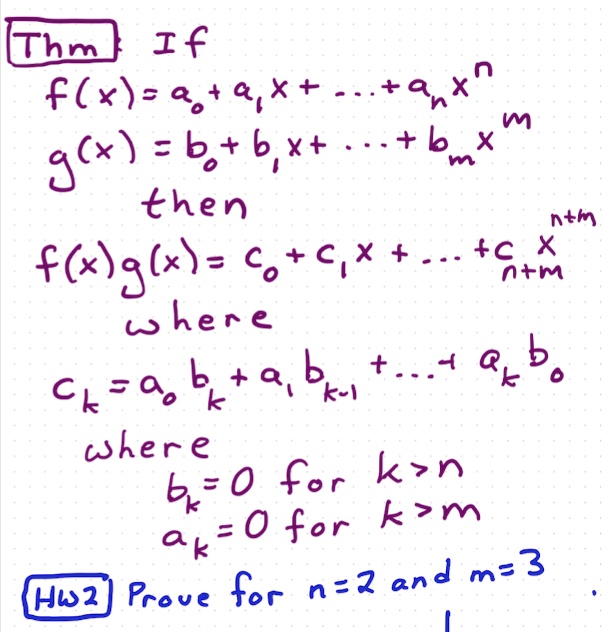 Thm: If
f(x) = a₀ + a₁x + ... + aₙxⁿ
g(x) = b₀ + b₁x + ... + bₘxᵐ
then
f(x)g(x) = c₀ + c₁x + ... + cₙ₊ₘxⁿ⁺ᵐ
where
cₖ = a₀bₖ + a₁bₖ₋₁ + ... + aₖb₀
where
bₖ = 0 for k > n
aₖ = 0 for k > m
HW2 Prove for n=2 and m=3.